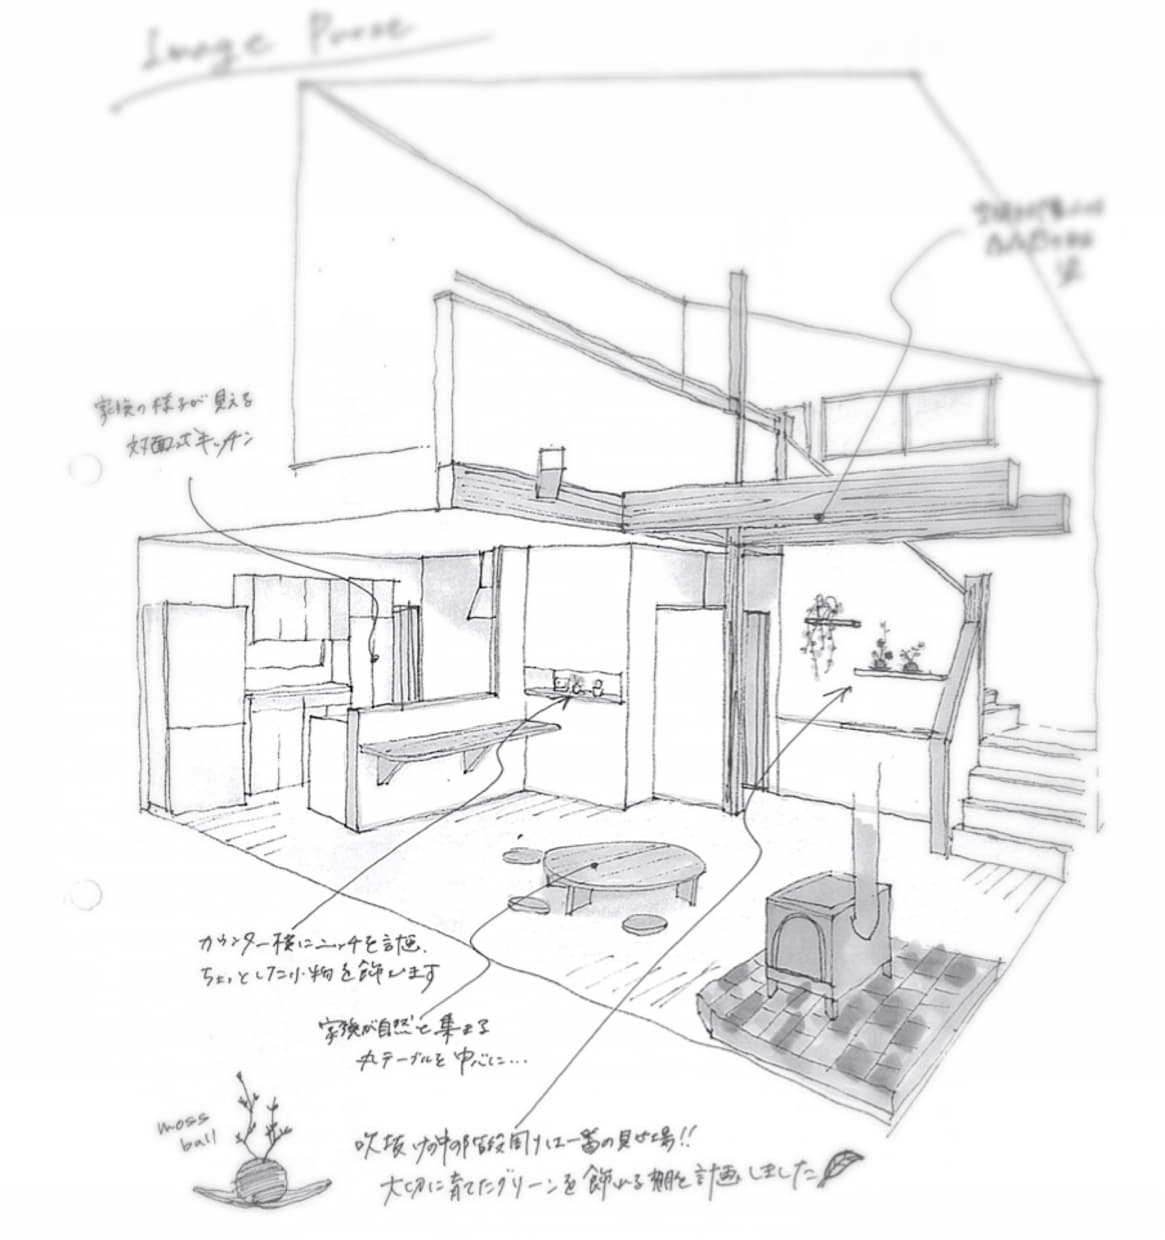 Image Purse
家族の様子が見える
対面式キッチン
カウンター横にニッチを計画、
ちょっとした小物を飾います
家族が自然と集まる
丸テーブルを中心に…
moss
ball
吹抜けの中の階段周りは一番の見せ場!!
大切に育てたグリーンを飾れる棚を計画しました